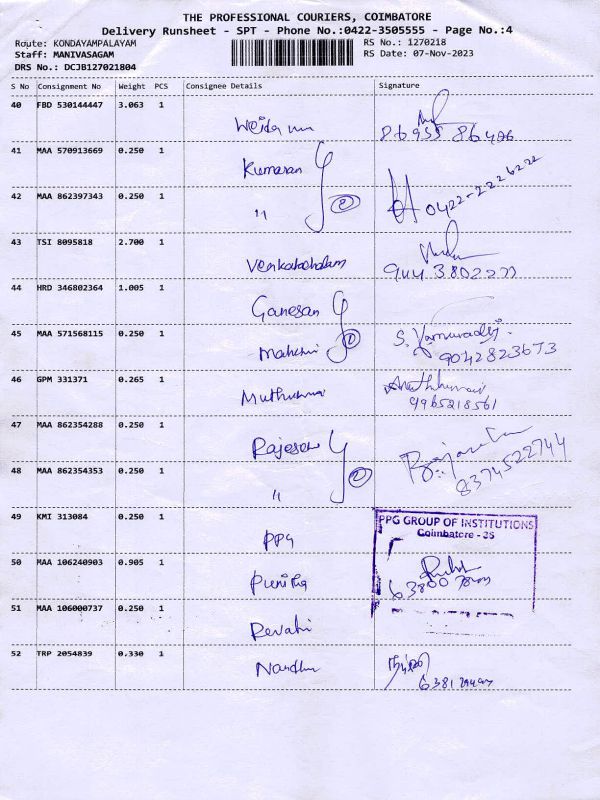 THE PROFESSIONAL COURIERS, COIMBATORE
Delivery Runsheet - SPT - Phone No.:0422-3505555 - Page No.:4
Route: KONDAYAMPALAYAM RS No.: 1270218
Staff: MANIVASAGAM RS Date: 07-Nov-2023
DRS No.: DCJB127021804
S No Consignment No Weight PCS Consignee Details Signature
40 FBD 530144447 3.063 1
41 MAA 570913669 0.250 1 Kumaran
42 MAA 862397343 0.250 1 " 2 0422-2226222
43 TSI 8095818 2.700 1 Venkatachalam
44 HRD 346802364 1.005 1 Ganesan
45 MAA 571568115 0.250 1 2 S. 9042823673
46 GPM 331371 0.265 1 9965218561
47 MAA 862354288 0.250 1
48 MAA 862354353 0.250 1 " 2 8374522744
49 KMI 313084 0.250 1 PPG PPG GROUP OF INSTITUTIONS
Coimbatore - 35
50 MAA 106240903 0.905 1 Punitha
51 MAA 106000737 0.250 1 Revathi
52 TRP 2054839 0.330 1